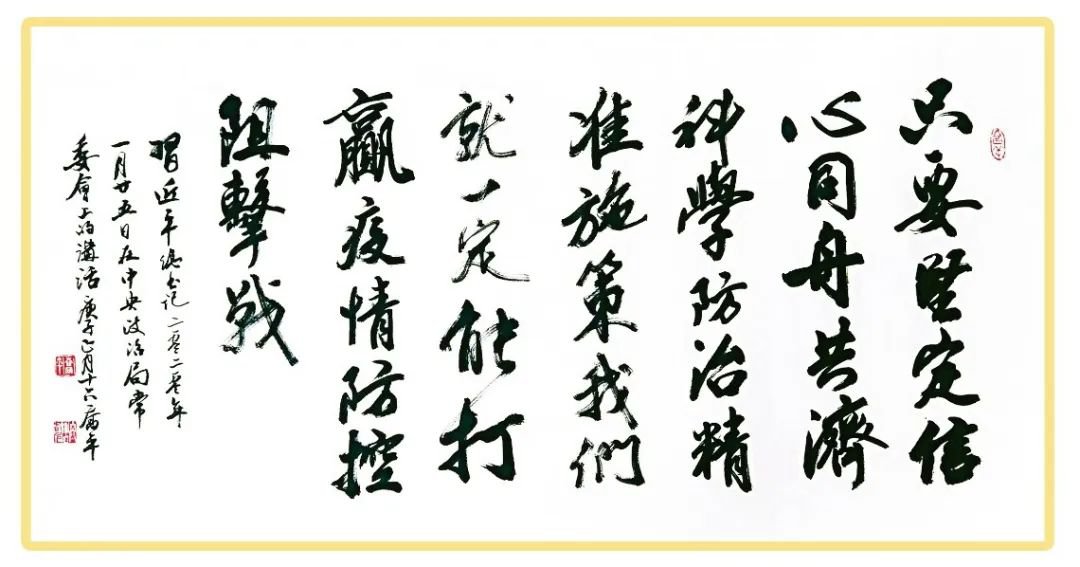 只要坚定信
心同舟共濟
科學防治精
准施策我們
就一定能打
贏疫情防控
阻擊战
習近平總书记二〇二〇年
一月廿五日在中央政治局常
委會上的講話 庚子正月十六 广年